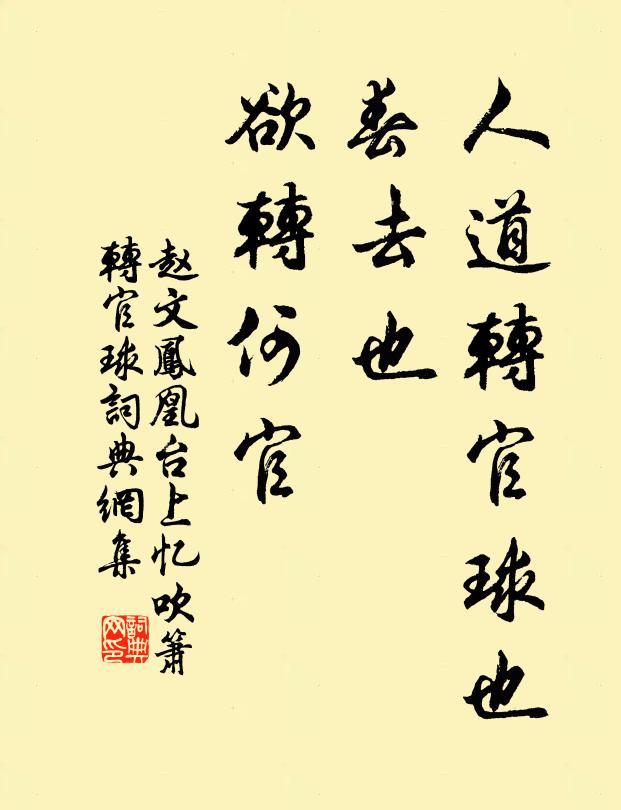 人道轉官球也
春去也
欲轉何官
赵文鳳凰台上忆吹箫
轉官球詞典網集
詞典
网印